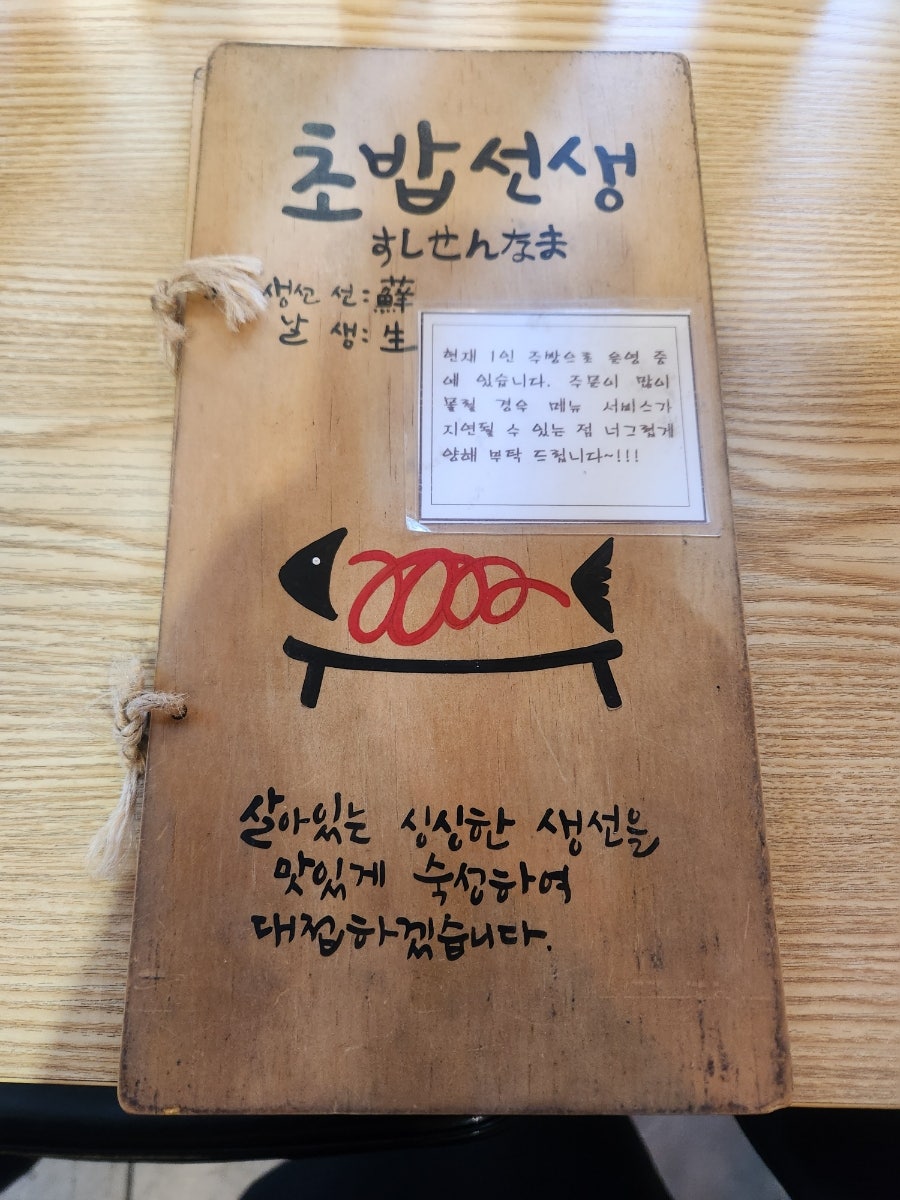 초밥선생
すしせんなま
생선 선:鱻
날 생:生
현재 1인 주방으로 운영 중
에 있습니다. 주문이 많이
몰릴 경우 메뉴 서비스가
지연될 수 있는 점 너그럽게
양해 부탁 드립니다~!!!
살아있는 싱싱한 생선을
맛있게 숙성하여
대접하겠습니다.